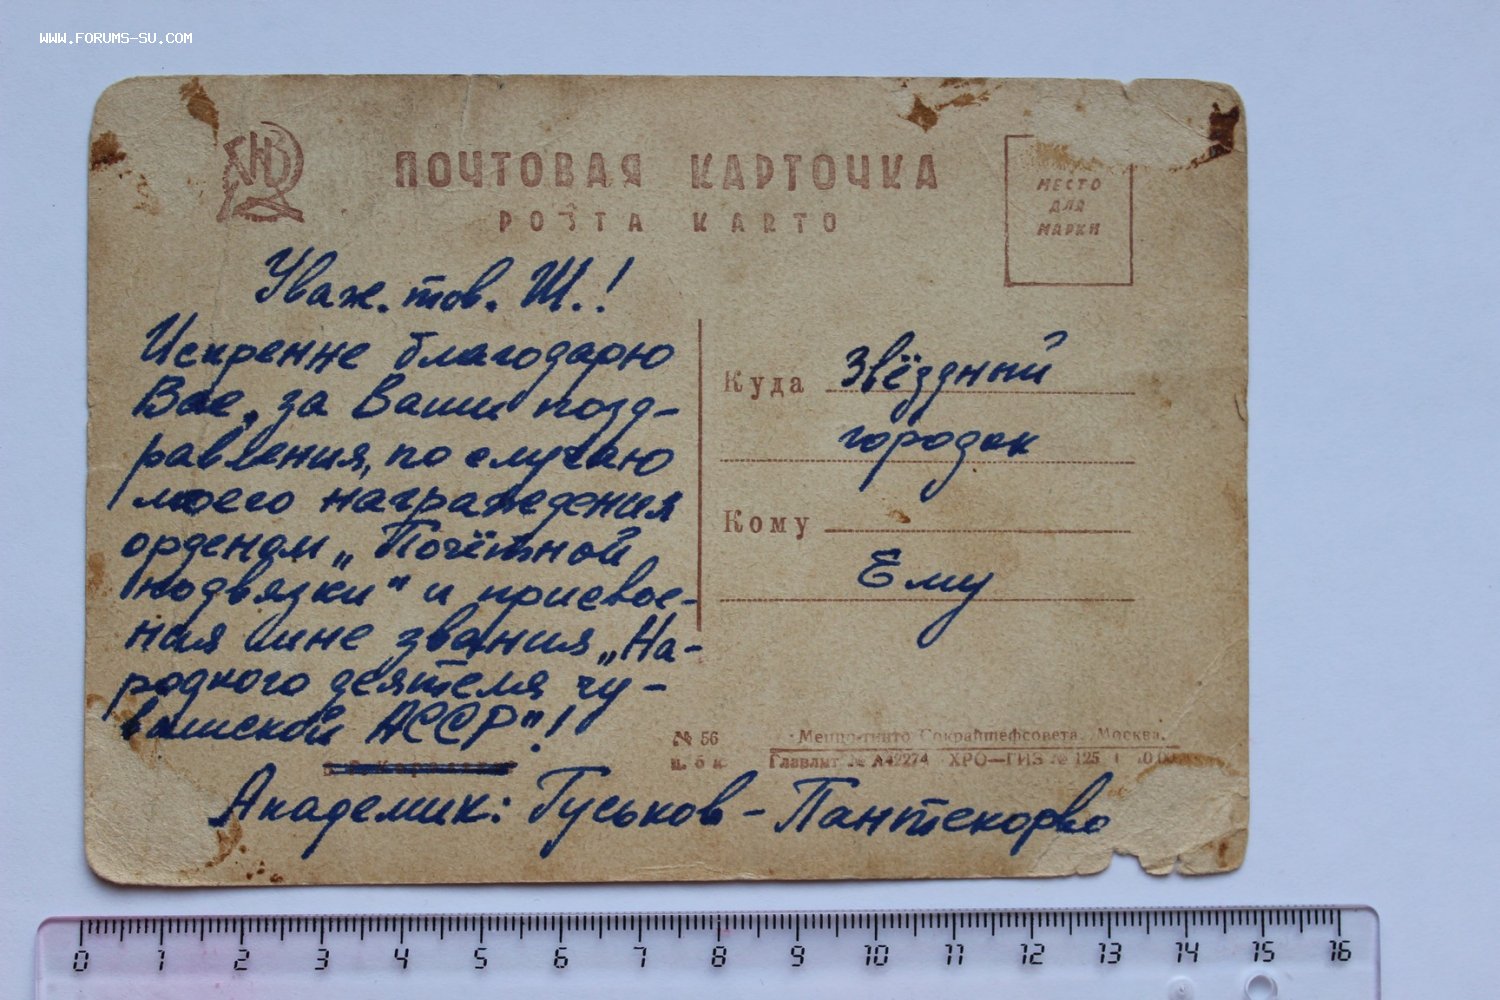 WWW.FORUMS-SU.COM
ПОЧТОВАЯ КАРТОЧКА
POŜTA KARTO
МЕСТО
ДЛЯ
МАРКИ
Уваж. тов. Ш.!
Искренне благодарю
Вас, за Ваши позд-
равления, по случаю
моего награждения
орденом „Почётной
подвязки" и присвое-
ния мне звания „На-
родного деятеля чу-
вашской АССР"!
Академик: Гуськов - Пантекорво
Куда Звёздный
городок
Кому
Ему
№ 56
ц. 6 к.
Меццо-тинто Сокрайтефсовета. Москва.
Главлит № А42274 ХРО—ГИЗ № 125
0 1 2 3 4 5 6 7 8 9 10 11 12 13 14 15 16